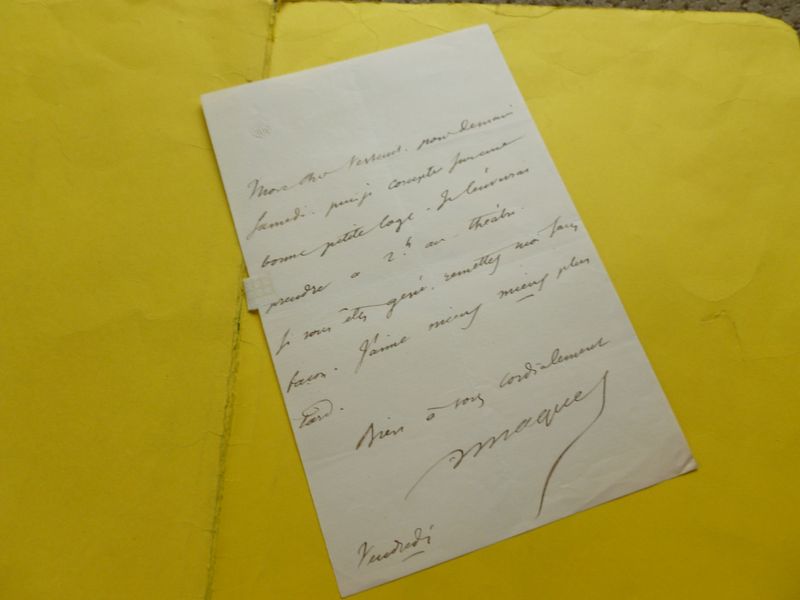 Mon cher Verteuil. pour demain
Samedi. puis-je compter sur une
bonne petite loge. Je l'enverrai
prendre a 2h au théâtre.
Si vous êtes gêné. remettez moi sans
façon. J'aime mieux mieux plus
tard.
Bien à vous cordialement
Maquet
Vendredi